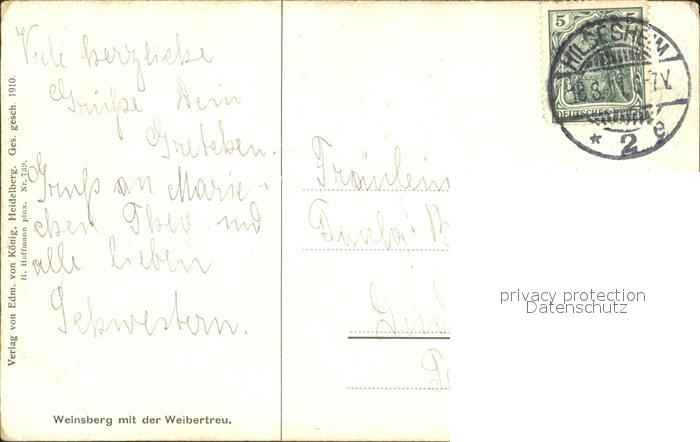 Viele herzliche
Grüße Dein
Gretchen.
Gruß an Marie-
chen Theo und
alle lieben
Schwestern.
Weinsberg mit der Weibertreu.
Verlag von Edm. von König, Heidelberg. Ges. gesch. 1910.
H. Hoffmann pinx. Nr. 739.
5 5
DEUTSCHES REICH
HILDESHEIM
6-7V.
* 2 c
Fräulein
Paula
privacy protection
Datenschutz